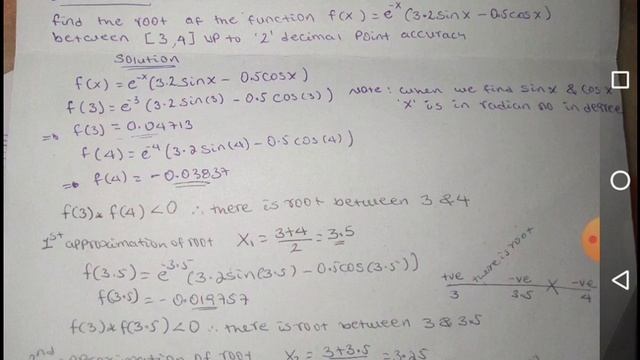 find the root of the function f(x) = e^-x (3.2sinx - 0.5cosx)
between [3,4] up to '2' decimal point accuracy
Solution
f(x) = e^-x (3.2sinx - 0.5cosx)
f(3) = e^-3 (3.2sin(3) - 0.5cos(3))
Note: when we find sinx & cosx
'x' is in radian no in degree
⇒ f(3) = 0.04713
f(4) = e^-4 (3.2sin(4) - 0.5cos(4))
⇒ f(4) = -0.03837
f(3)*f(4) < 0 ∴ there is root between 3 & 4
1st approximation of root X₁ = 3+4/2 = 3.5
f(3.5) = e^-3.5 (3.2sin(3.5) - 0.5cos(3.5))
f(3.5) = -0.019757
+ve there is root -ve X -ve
3 3.5 4
f(3)*f(3.5) < 0 ∴ there is root between 3 & 3.5
2nd approximation of root X₂ = 3+3.5/2 = 3.25